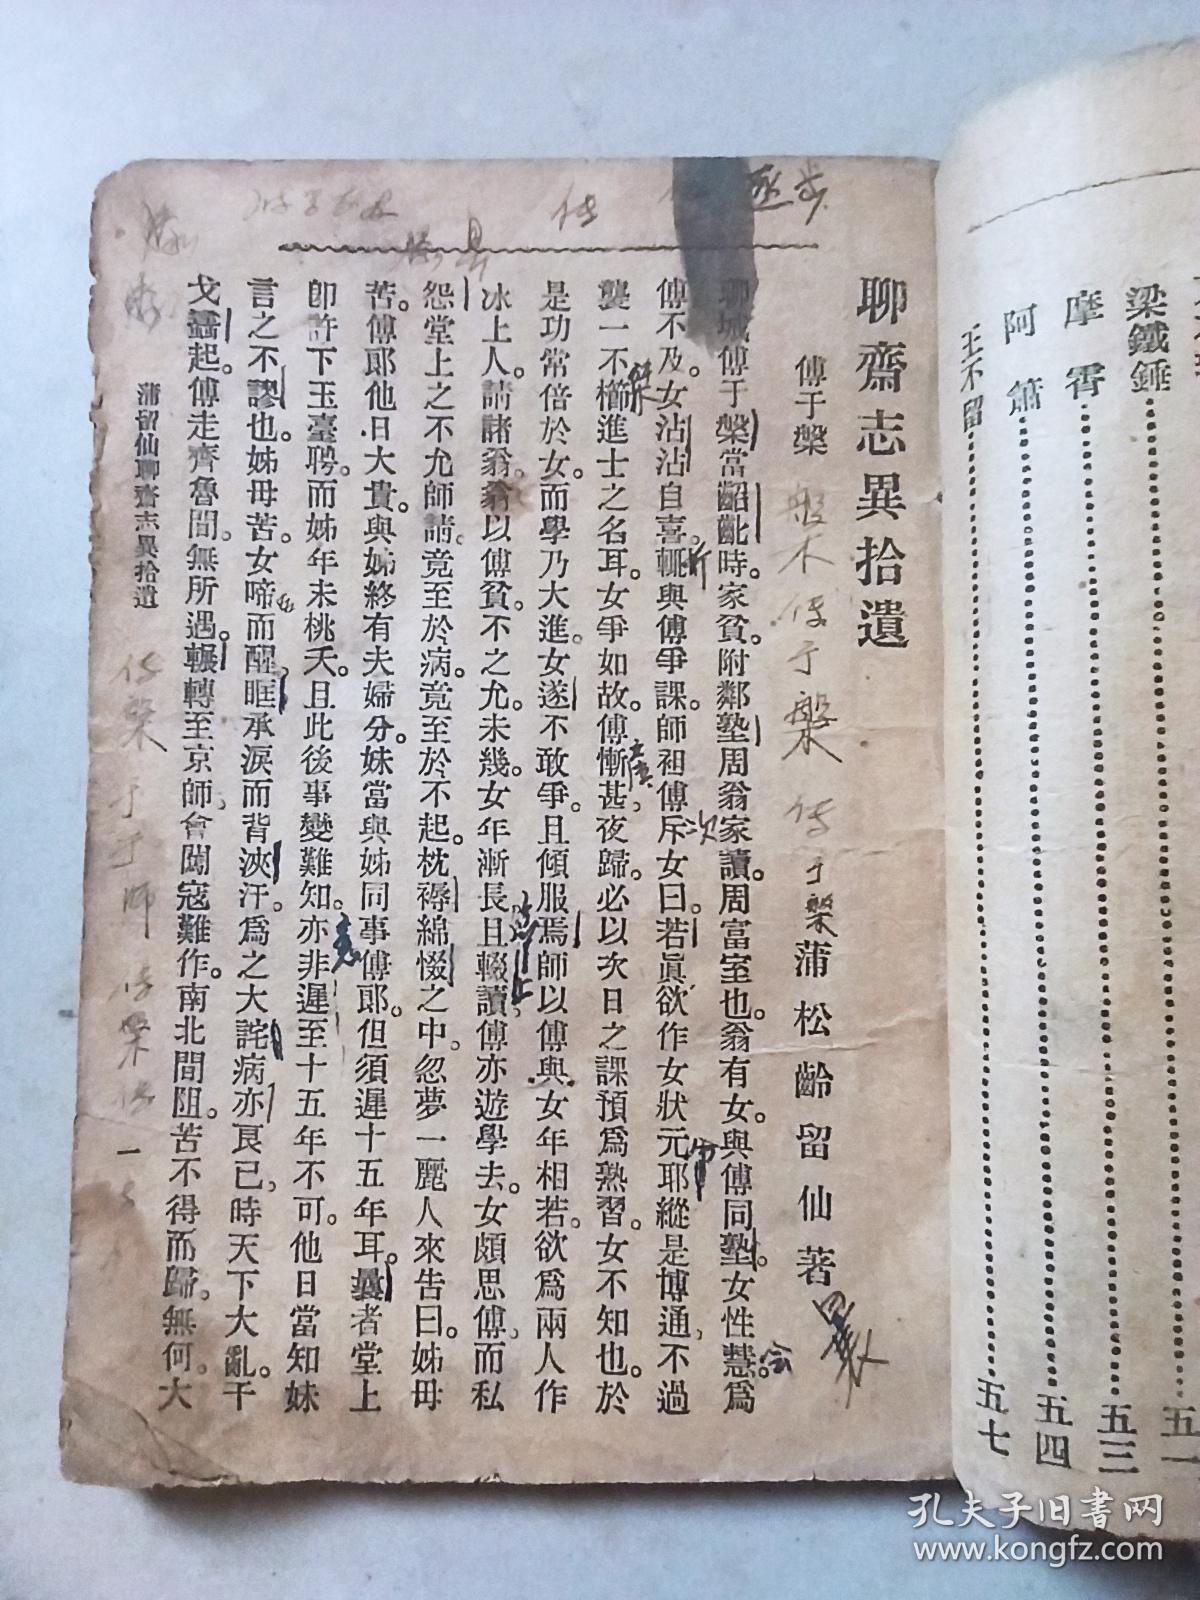 梁鐵錘
五一
摩霄
五三
阿簫
五四
王不留
五七
聊齋志異拾遺
傅于槃
蒲松齡留仙著
聊城傅于槃當齠齔時。家貧。附鄰塾周翁家讀。周富室也。翁有女。與傅同塾。女性慧。爲
傅不及。女沾沾自喜。輒與傅爭課。師袒傅斥女曰。若眞欲作女狀元耶。縱是博通。不過
襲一不櫛進士之名耳。女爭如故。傅慚甚。夜歸。必以次日之課預爲熟習。女不知也。於
是功常倍於女。而學乃大進。女遂不敢爭。且傾服焉。師以傅與女年相若。欲爲兩人作
冰上人。請諸翁。翁以傅貧。不之允。未幾。女年漸長。且輟讀。傅亦遊學去。女頗思傅。而私
怨堂上之不允師請。竟至於病。竟至於不起。枕褥綿惙之中。忽夢一麗人來告曰。姊毋
苦。傅郎他日大貴。與姊終有夫婦分。妹當與姊同事傅郎。但須遲十五年耳。曩者堂上
卽許下玉臺聘。而姊年未桃夭。且此後事變難知。亦非遲至十五年不可。他日當知妹
言之不謬也。姊毋苦。女啼而醒。眶承淚而背浹汗。爲之大詫。病亦良已。時天下大亂。干
戈蠭起。傅走齊魯間。無所遇。輾轉至京師。會闖寇難作。南北間阻。苦不得而歸。無何。大
蒲留仙聊齋志異拾遺
一
孔夫子旧书网
www.kongfz.com